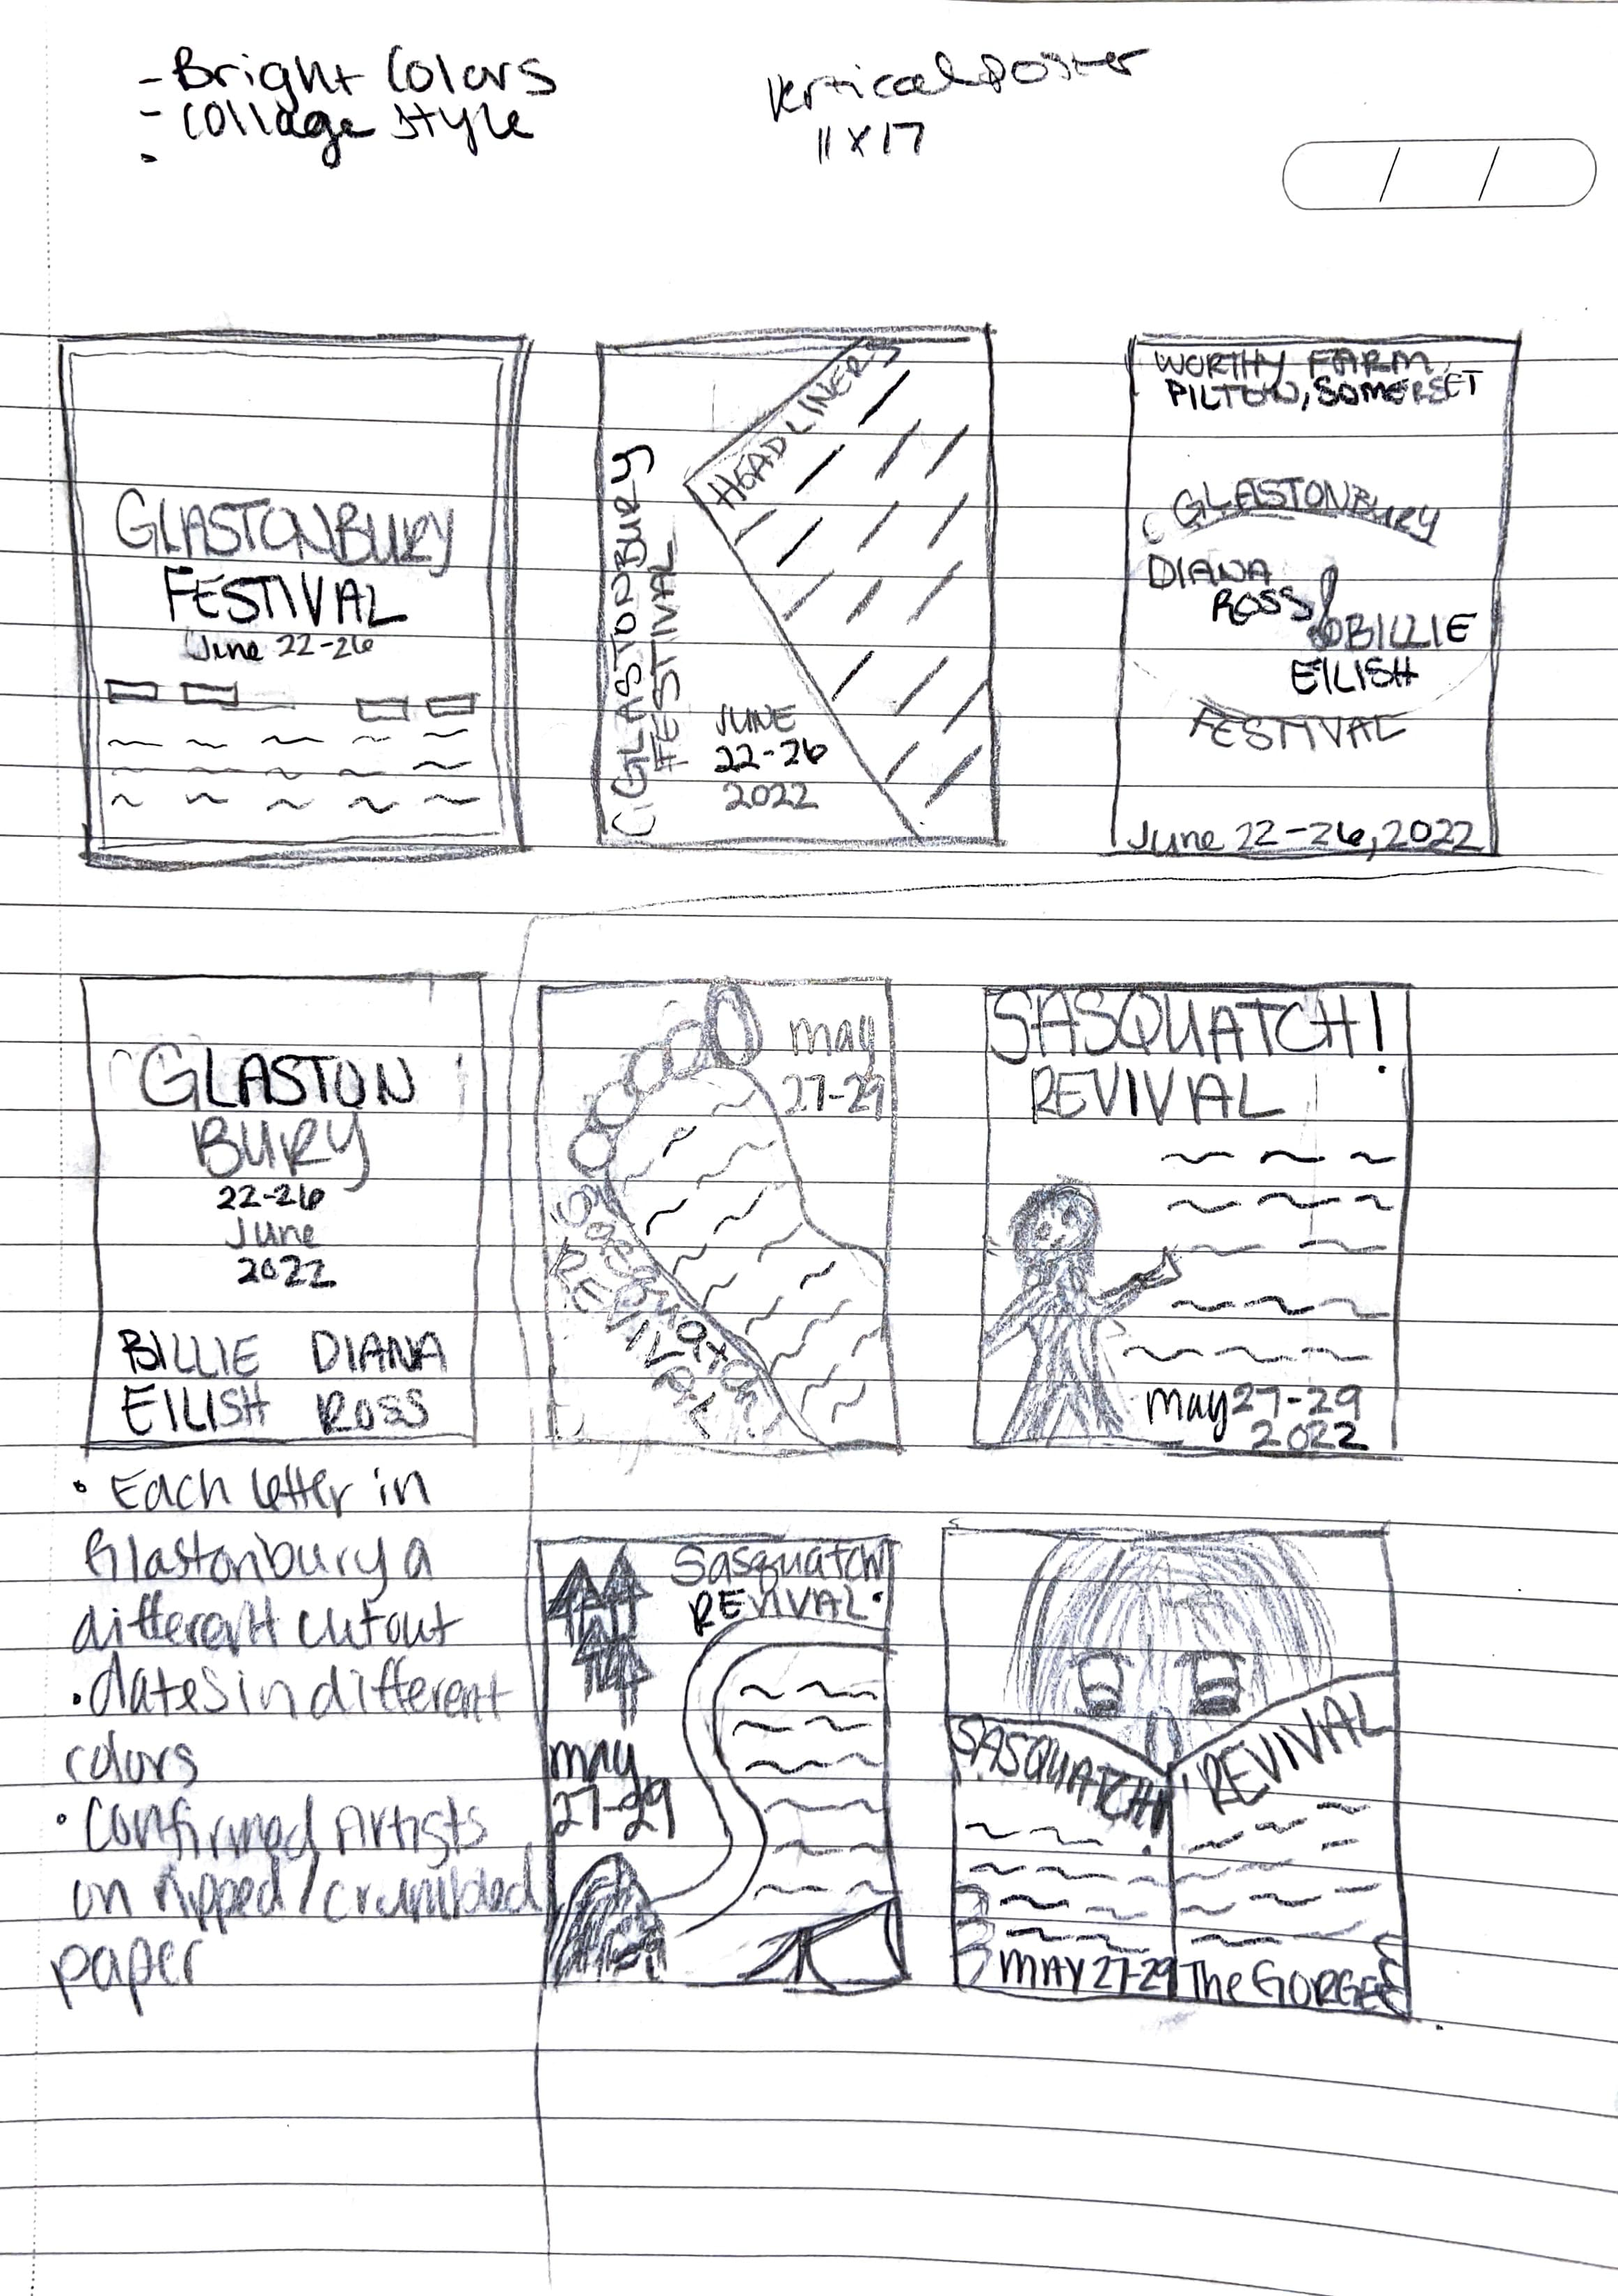 - Bright Colors
- Collage style
Vertical poster
11 x 17
GLASTONBURY
FESTIVAL
June 22-26
GLASTONBURY
FESTIVAL
HEADLINERS
JUNE
22-26
2022
WORTHY FARM,
PILTON, SOMERSET
GLASTONBURY
DIANA
ROSS
BILLIE
EILISH
FESTIVAL
June 22-26, 2022
GLASTON
BURY
22-26
June
2022
BILLIE DIANA
EILISH ROSS
• Each letter in
Glastonbury a
different cutout
• dates in different
colors
• Confirmed Artists
on ripped/crumbled
paper
may
27-29
Sasquatch!
REVIVAL
SASQUATCH!
REVIVAL
may 27-29
2022
Sasquatch
REVIVAL
may
27-29
SASQUATCH!
REVIVAL
MAY 27-29
The GORGE